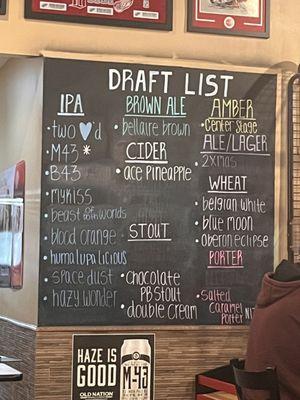 DRAFT LIST
IPA
• two ♥'d
• M43 *
• B43
• mykiss
• beast of both worlds
• blood orange
• huma lupa licious
• space dust
• hazy wonder
BROWN ALE
• bellaire brown
CIDER
• ace pineapple
STOUT
• chocolate
PB stout
• double cream
AMBER
• Center Stage
ALE/LAGER
• 2xmas
WHEAT
• belgian white
• blue moon
• oberon eclipse
PORTER
• Salted
Caramel
Porter
HAZE IS
GOOD
OLD NATION
M-43